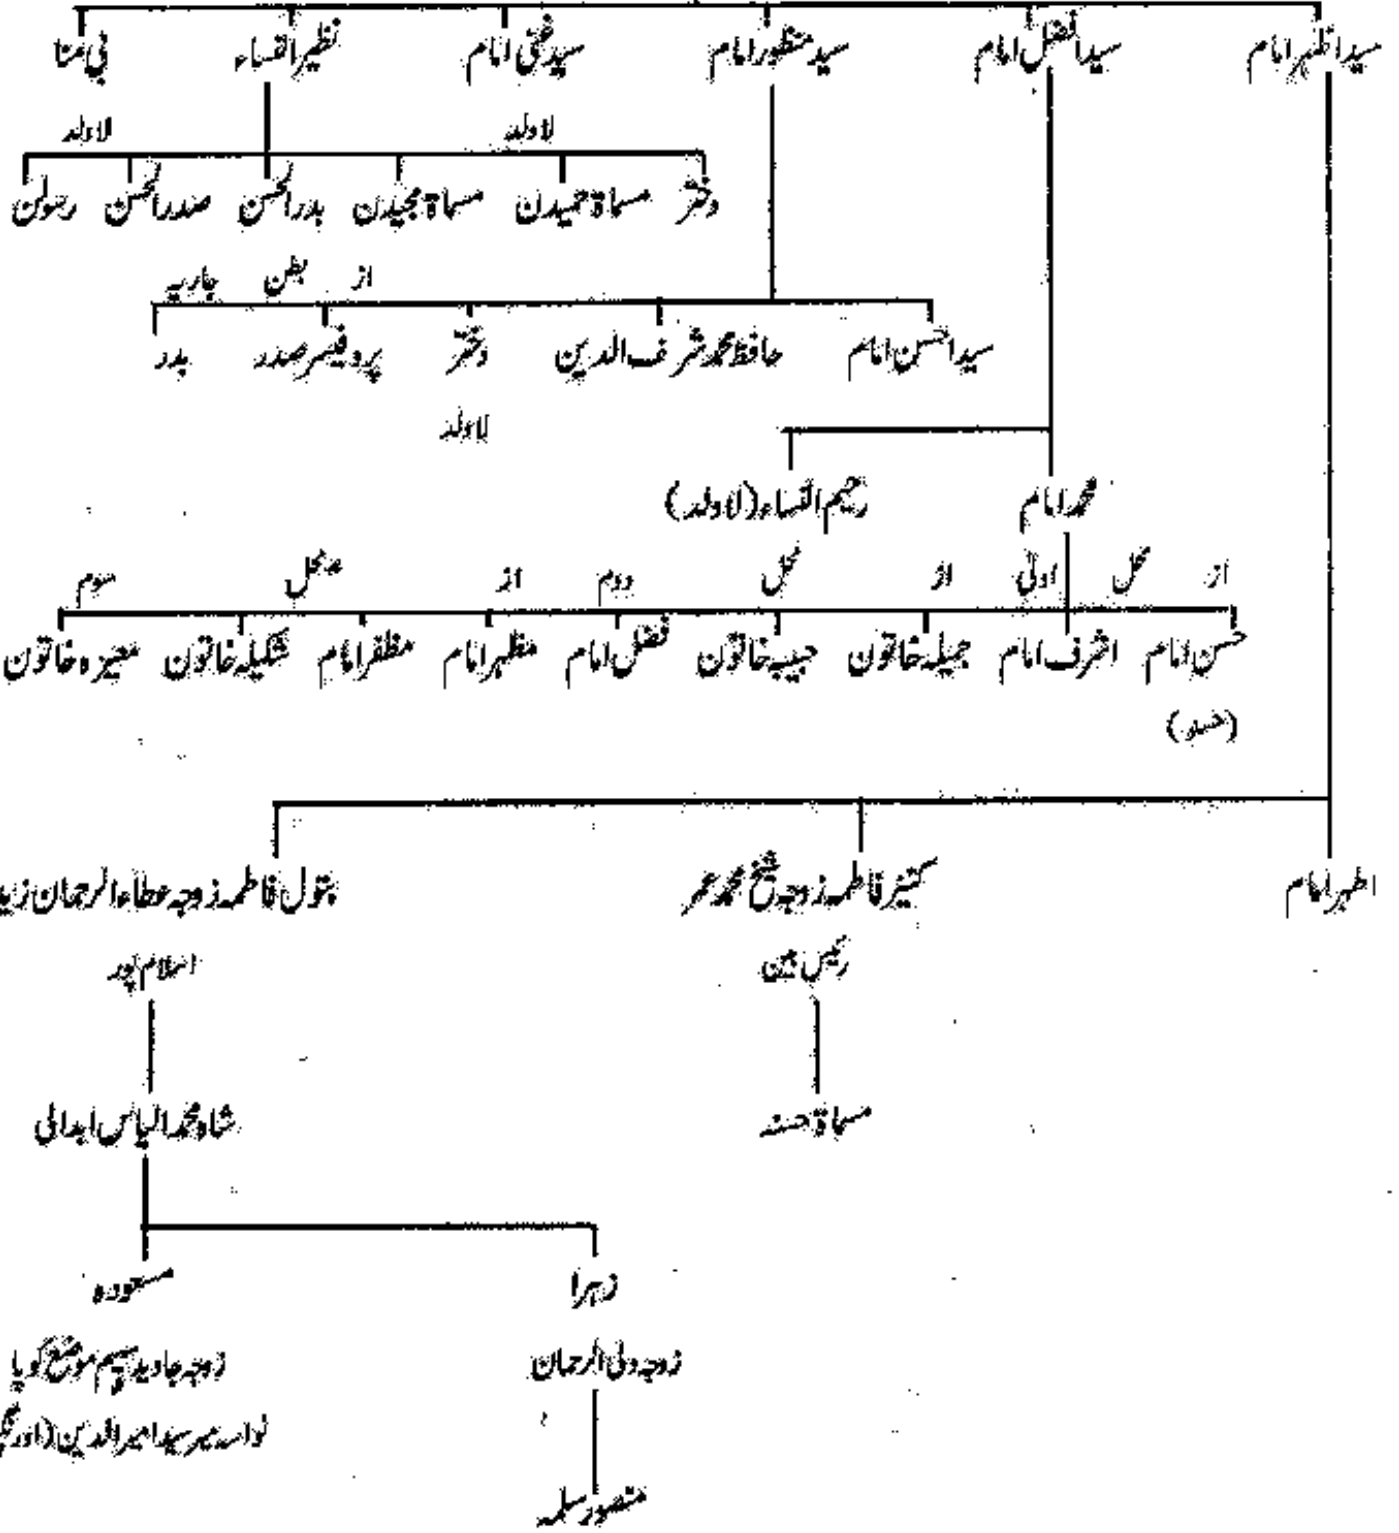 سید اظہر امام سید افضل امام سید منظور امام سید غنی امام نظیر النساء بی منا
لاولد لاولد
دختر مسماۃ حمیدن مسماۃ مجیدن بدر الحسن صدر الحسن رسولن
از بطن جاریہ
سید احسن امام حافظ محمد شرف الدین دختر پروفیسر صدر بدر
لاولد
محمد امام رحیم النساء (لاولد)
از محل اولیٰ از محل دوم از محل سوم
حسن امام اشرف امام جمیلہ خاتون حبیبہ خاتون فضل امام مظہر امام مظفر امام شکیلہ خاتون معیزہ خاتون
اطہر امام کنیز فاطمہ زوجہ شیخ محمد عمر بتول فاطمہ زوجہ عطاء الرحمان
رئیس بین اسلام پور
مسماۃ حسنہ شاہ محمد الیاس ابدالی
زہرا مسعودہ
زوجہ ولی الرحمان زوجہ جاوید موضع گویا
نواسہ میر سید امیر الدین
منصور سلمہ